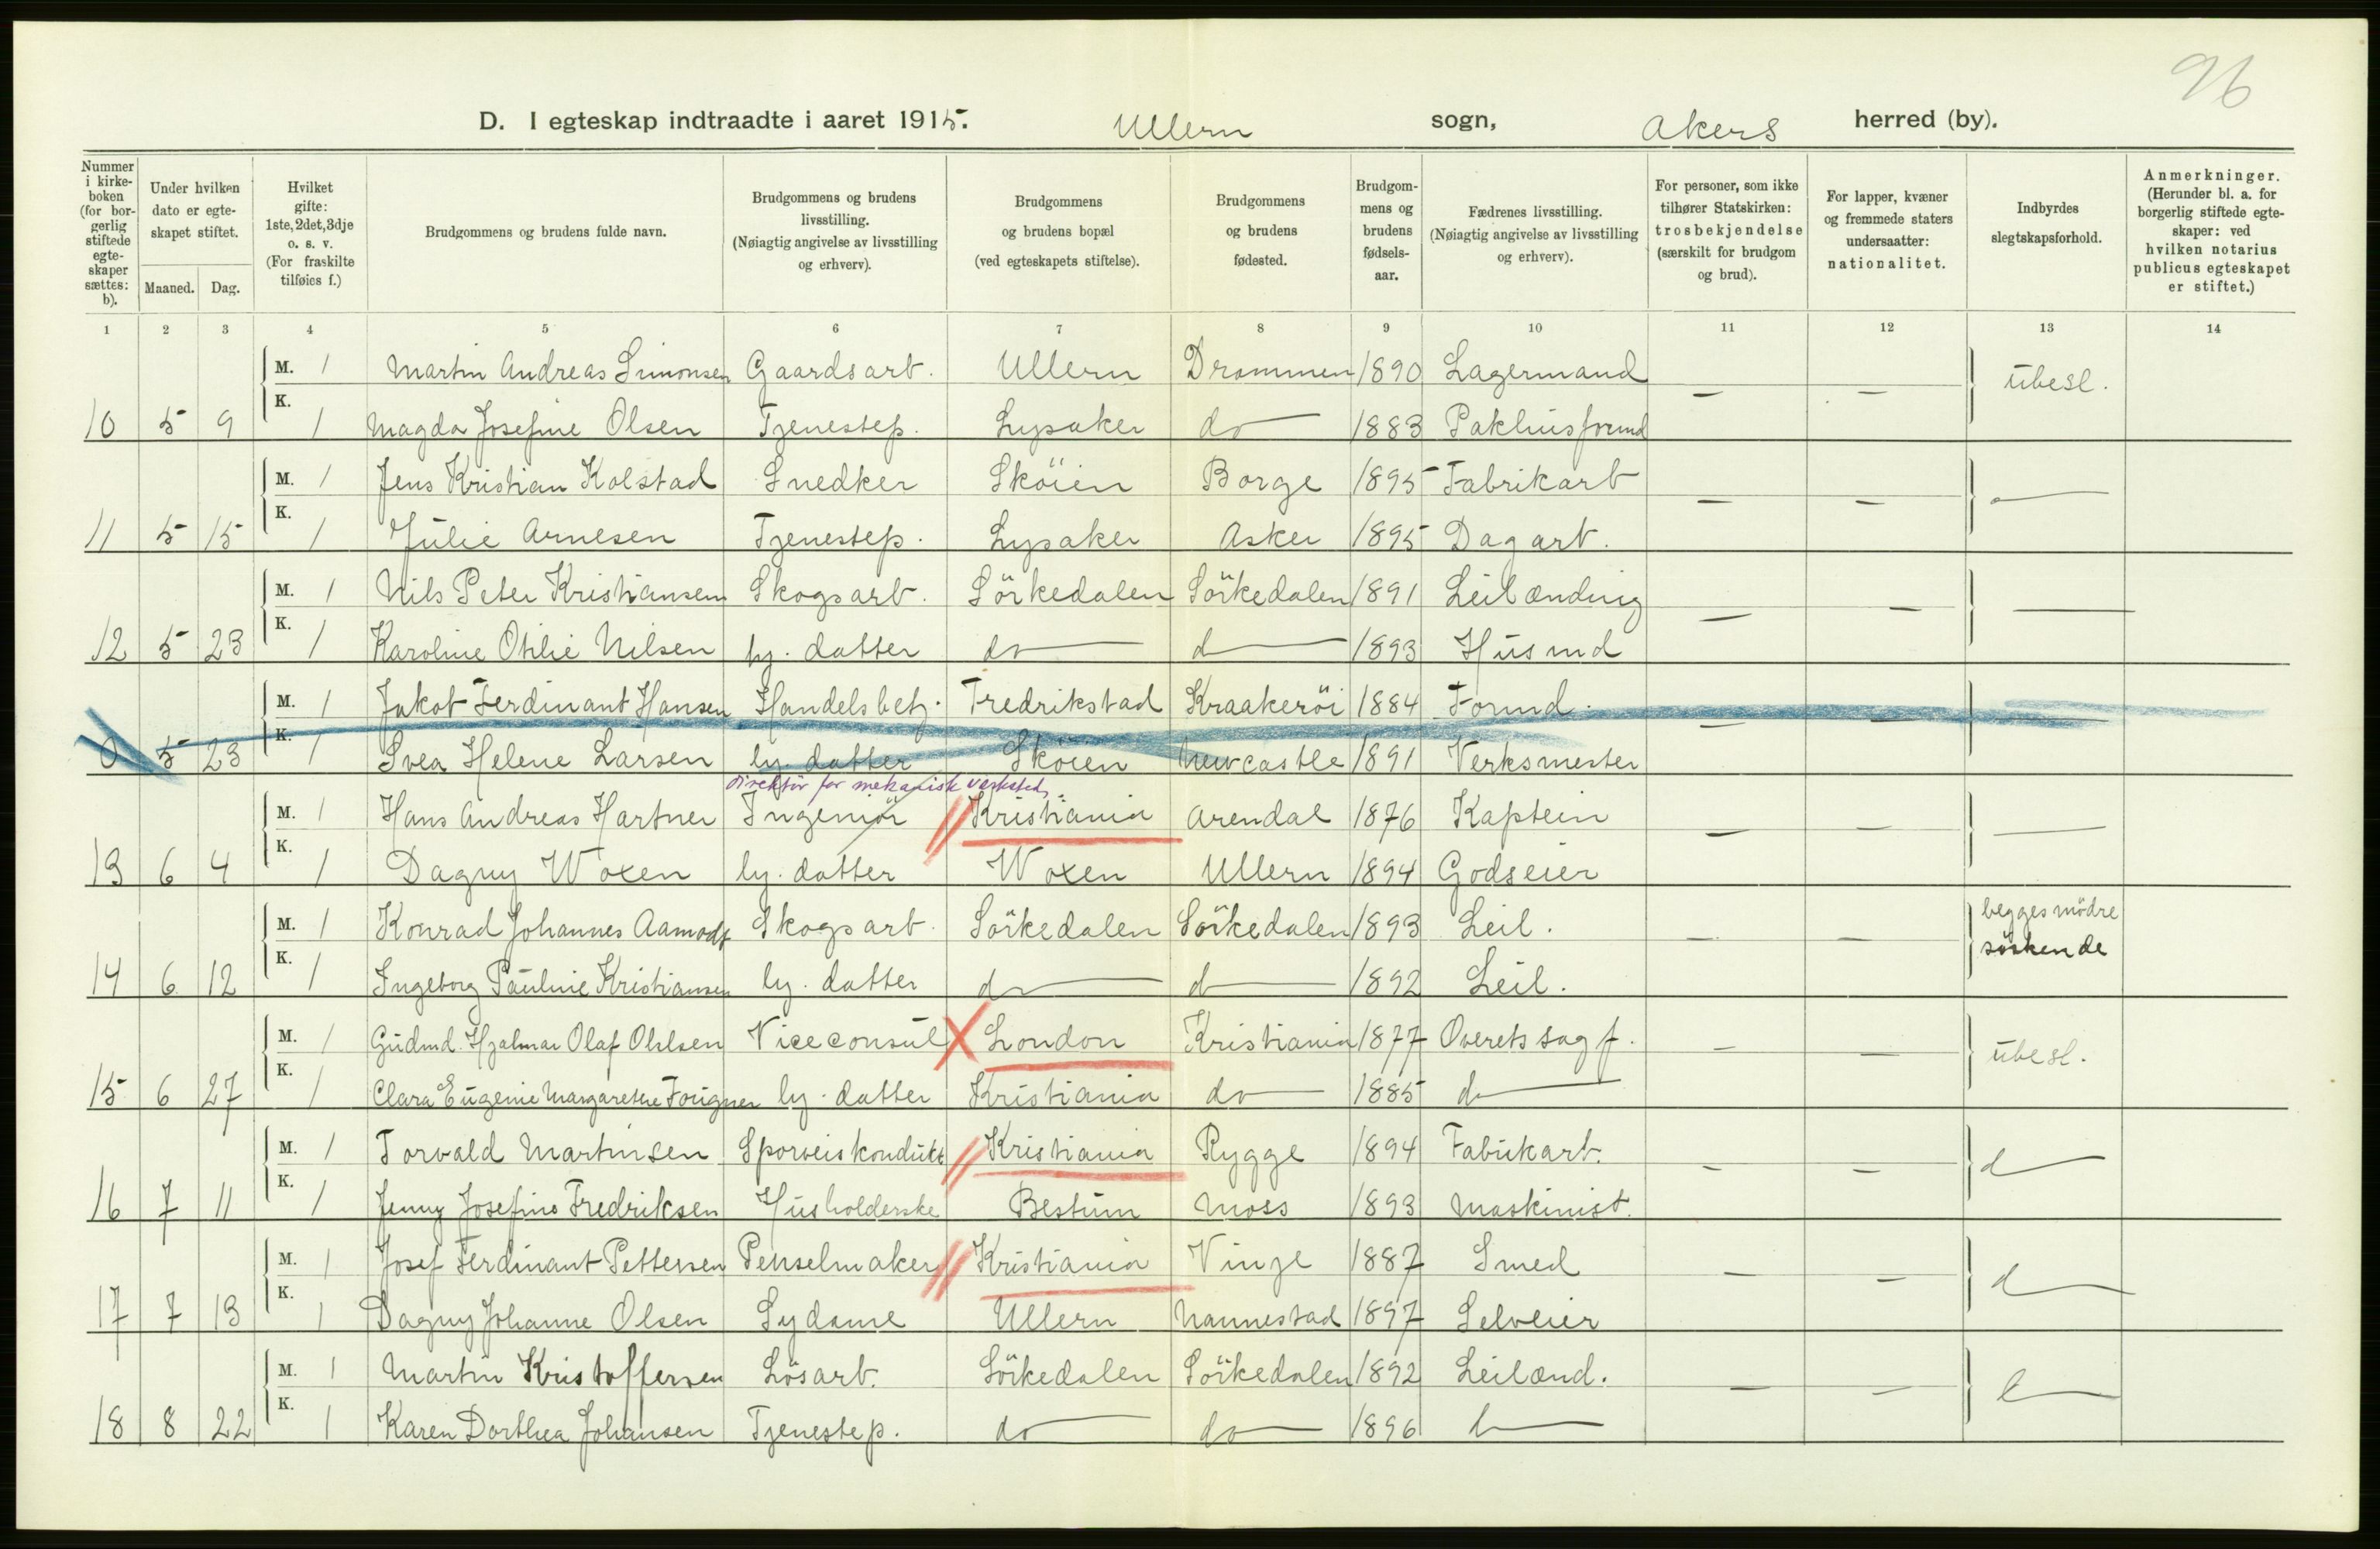 96
D. I egteskap indtraadte i aaret 1915. Ullern sogn, Akers herred (by).
Nummer i kirkeboken (for borgerlig stiftede egteskaper sættes: b).
Under hvilken dato er egteskapet stiftet.
Maaned. Dag.
Hvilket gifte: 1ste, 2det, 3dje o. s. v. (For fraskilte tilføies f.)
Brudgommens og brudens fulde navn.
Brudgommens og brudens livsstilling. (Nøiagtig angivelse av livsstilling og erhverv).
Brudgommens og brudens bopæl (ved egteskapets stiftelse).
Brudgommens og brudens fødested.
Brudgommens og brudens fødselsaar.
Fædrenes livsstilling. (Nøiagtig angivelse av livsstilling og erhverv).
For personer, som ikke tilhører Statskirken: trosbekjendelse (særskilt for brudgom og brud).
For lapper, kvæner og fremmede staters undersaatter: nationalitet.
Indbyrdes slegtskapsforhold.
Anmerkninger. (Herunder bl. a. for borgerlig stiftede egteskaper: ved hvilken notarius publicus egteskapet er stiftet.)
1 2 3 4 5 6 7 8 9 10 11 12 13 14
M. 1 Martin Andreas Simonsen Gaardsarb. Ullern Drammen 1890 Lagermand — — ubesl.
10 5 9 K. 1 Magda Josefine Olsen Tjenestep. Lysaker do 1883 Pakhusformd
M. 1 Jens Kristian Kolstad Snedker Sköien Borge 1895 Fabrikarb — — —
11 5 15 K. 1 Julie Arnesen Tjenestep. Lysaker Asker 1895 Dagarb.
M. 1 Nils Peter Kristiansen Skogsarb. Sörkedalen Sörkedalen 1891 Leilænding — — —
12 5 23 K. 1 Karoline Otilie Nilsen hj. datter do d 1893 Husmd
M. 1 Jakob Ferdinant Hansen Handelsbetj. Fredrikstad Kraakeröi 1884 Formd. — — —
0 5 23 K. 1 Svea Helene Larsen hj. datter Sköien Newcastle 1891 Verksmester
direktör for mekanisk verksted.
M. 1 Hans Andreas Hartner Ingeniör Kristiania Arendal 1876 Kaptein — — —
13 6 4 K. 1 Dagny Woxen hj. datter Woxen Ullern 1894 Godseier
M. 1 Konrad Johannes Aamodt Skogsarb. Sörkedalen Sörkedalen 1893 Leil. — — begges mödre söskende
14 6 12 K. 1 Ingeborg Pauline Kristiansen hj. datter do d 1892 Leil.
M. 1 Gudmd. Hjalmar Olaf Ohlsen Viceconsul London Kristiania 1877 Overetssagf. — — ubesl.
15 6 27 K. 1 Clara Eugenie Margarethe Fougner hj. datter Kristiania do 1885 d
M. 1 Torvald Martinsen Sporveiskondukt Kristiania Rygge 1894 Fabrikarb. — — d
16 7 11 K. 1 Jenny Josefine Fredriksen Husholderske Bestum Moss 1893 Maskinist.
M. 1 Josef Ferdinant Pettersen Penselmaker Kristiania Vinje 1887 Smed — — d
17 7 13 K. 1 Dagny Johanne Olsen Sydame Ullern Nannestad 1897 Selveier
M. 1 Martin Kristoffersen Lösarb. Sörkedalen Sörkedalen 1892 Leilænd. — —
18 8 22 K. 1 Karen Dorthea Johansen Tjenestep. do do 1896